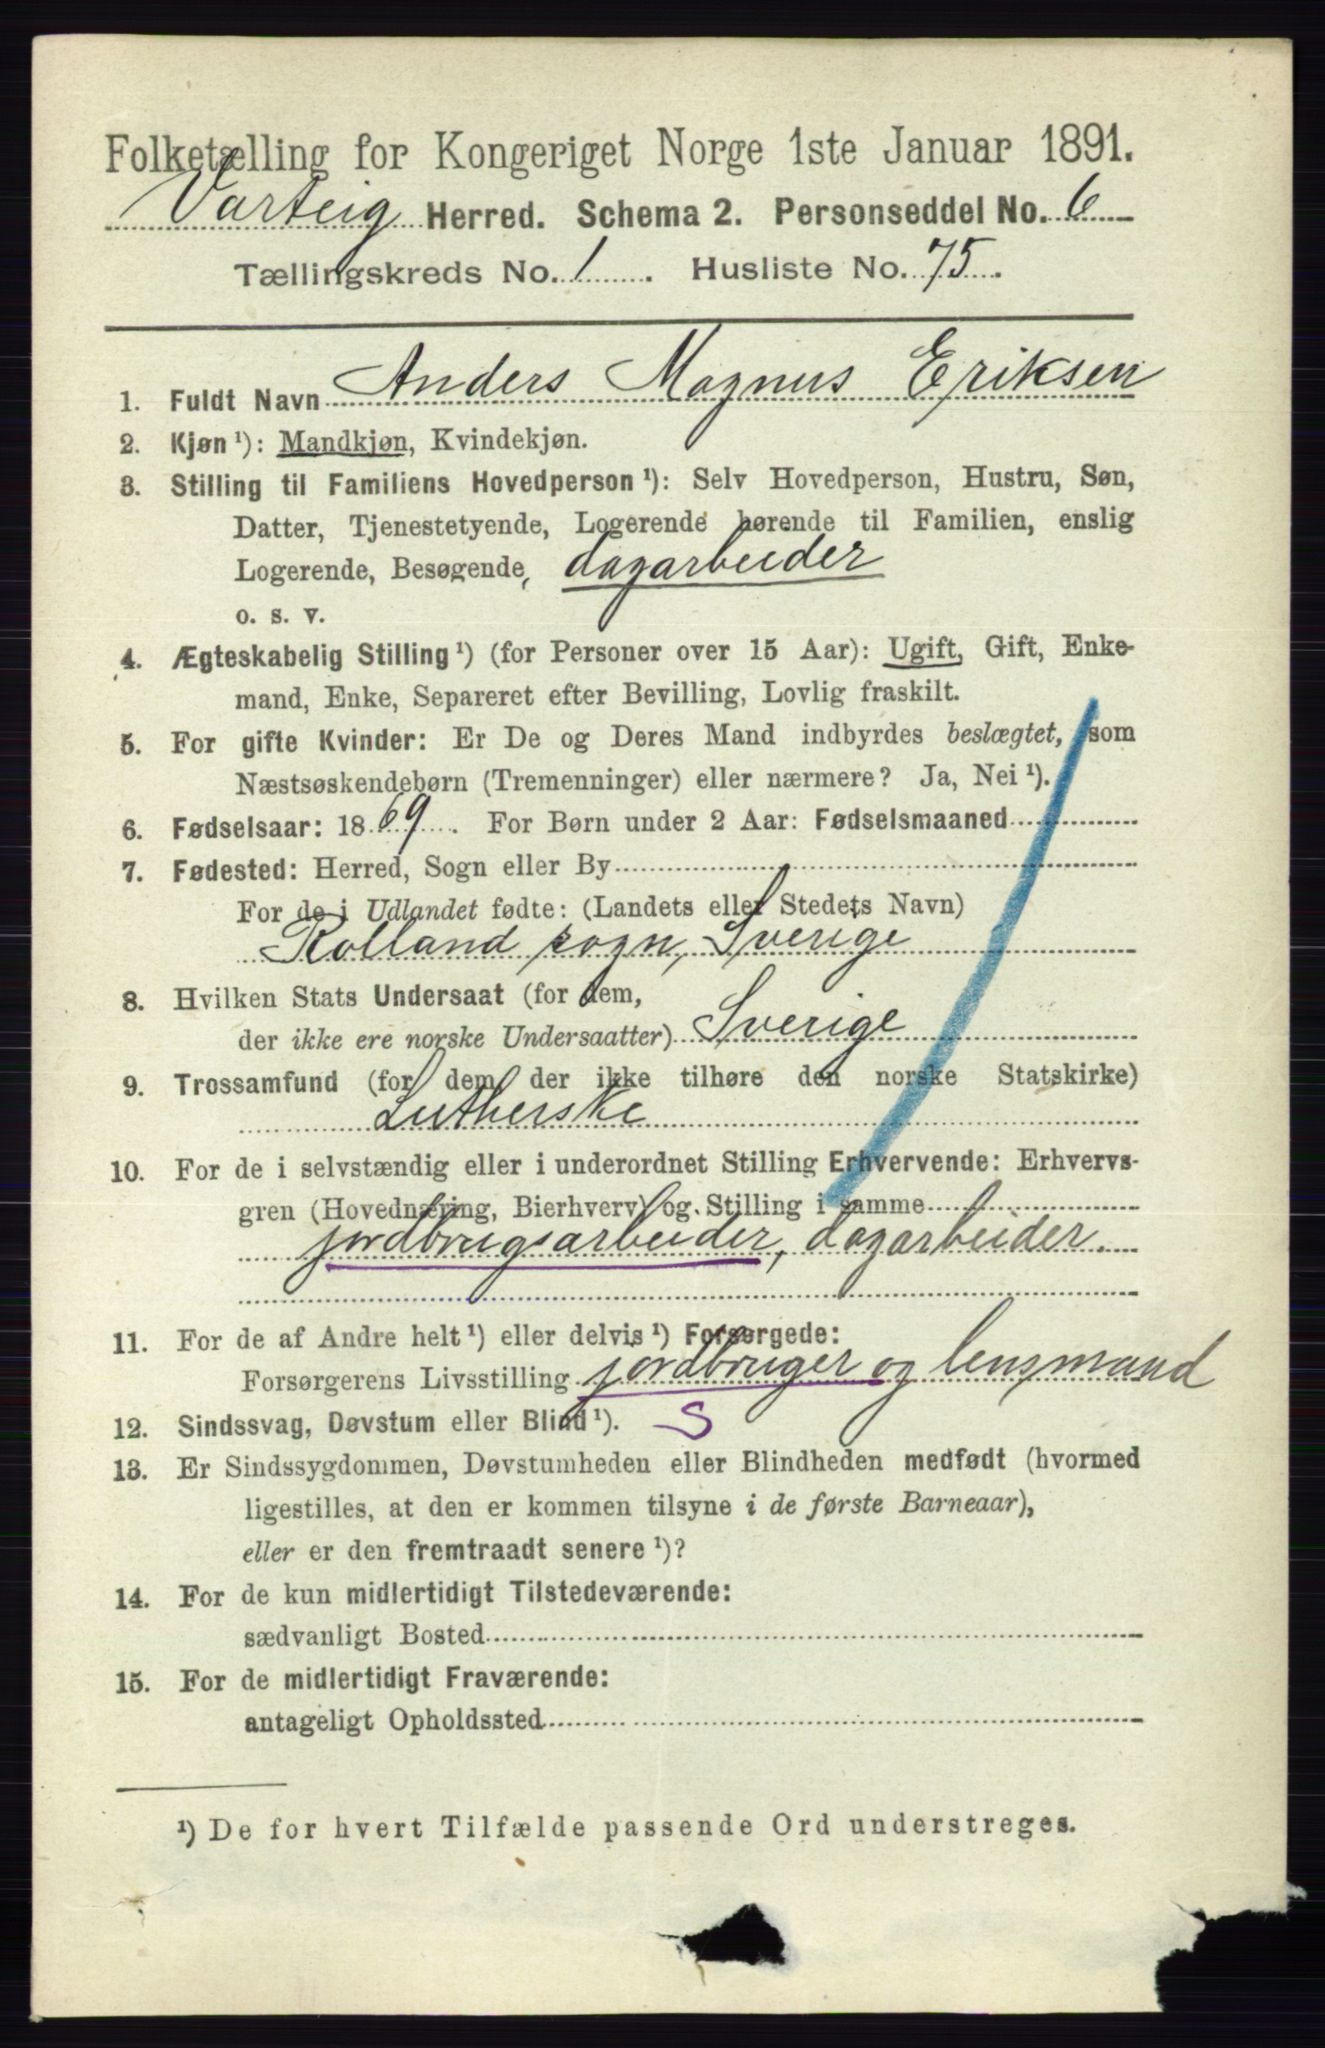 Folketælling for Kongeriget Norge 1ste Januar 1891.
Varteig Herred. Schema 2. Personseddel No. 6
Tællingskreds No. 1. Husliste No. 75.
1. Fuldt Navn Anders Magnus Eriksen
2. Kjøn ¹): Mandkjøn, Kvindekjøn.
3. Stilling til Familiens Hovedperson ¹): Selv Hovedperson, Hustru, Søn,
Datter, Tjenestetyende, Logerende hørende til Familien, enslig
Logerende, Besøgende, dagarbeider
o. s. v.
4. Ægteskabelig Stilling ¹) (for Personer over 15 Aar): Ugift, Gift, Enke-
mand, Enke, Separeret efter Bevilling, Lovlig fraskilt.
5. For gifte Kvinder: Er De og Deres Mand indbyrdes beslægtet, som
Næstsøskendebørn (Tremenninger) eller nærmere? Ja, Nei ¹).
6. Fødselsaar: 1869. For Børn under 2 Aar: Fødselsmaaned
7. Fødested: Herred, Sogn eller By
For de i Udlandet fødte: (Landets eller Stedets Navn)
Rolland sogn, Sverige
8. Hvilken Stats Undersaat (for dem,
der ikke ere norske Undersaatter) Sverige
9. Trossamfund (for dem der ikke tilhøre den norske Statskirke)
Lutherske
10. For de i selvstændig eller i underordnet Stilling Erhvervende: Erhvervs-
gren (Hovednæring, Bierhverv) og Stilling i samme
jordbrugsarbeider, dagarbeider.
11. For de af Andre helt ¹) eller delvis ¹) Forsørgede:
Forsørgerens Livsstilling jordbruger og lensmand
12. Sindssvag, Døvstum eller Blind ¹). S
13. Er Sindssygdommen, Døvstumheden eller Blindheden medfødt (hvormed
ligestilles, at den er kommen tilsyne i de første Barneaar),
eller er den fremtraadt senere ¹)?
14. For de kun midlertidigt Tilstedeværende:
sædvanligt Bosted
15. For de midlertidigt Fraværende:
antageligt Opholdssted
¹) De for hvert Tilfælde passende Ord understreges.